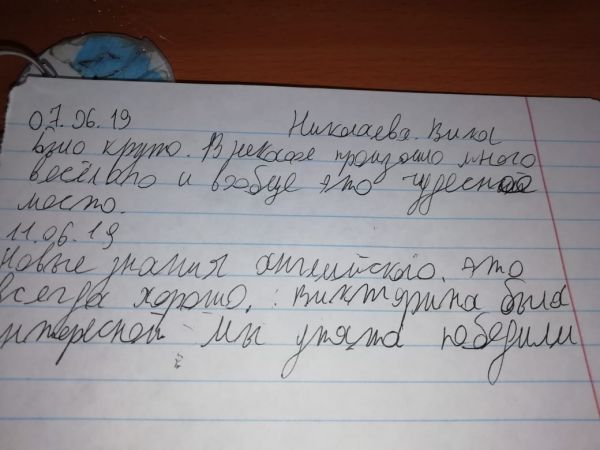 07.06.19 Николаева. Вика
было круто. В рюкзаке произошло много
весёлого и вообще это чудесное
место.
11.06.19
Новые знания английского. это
всегда хорошо. Викторина была
интересной мы опять победили